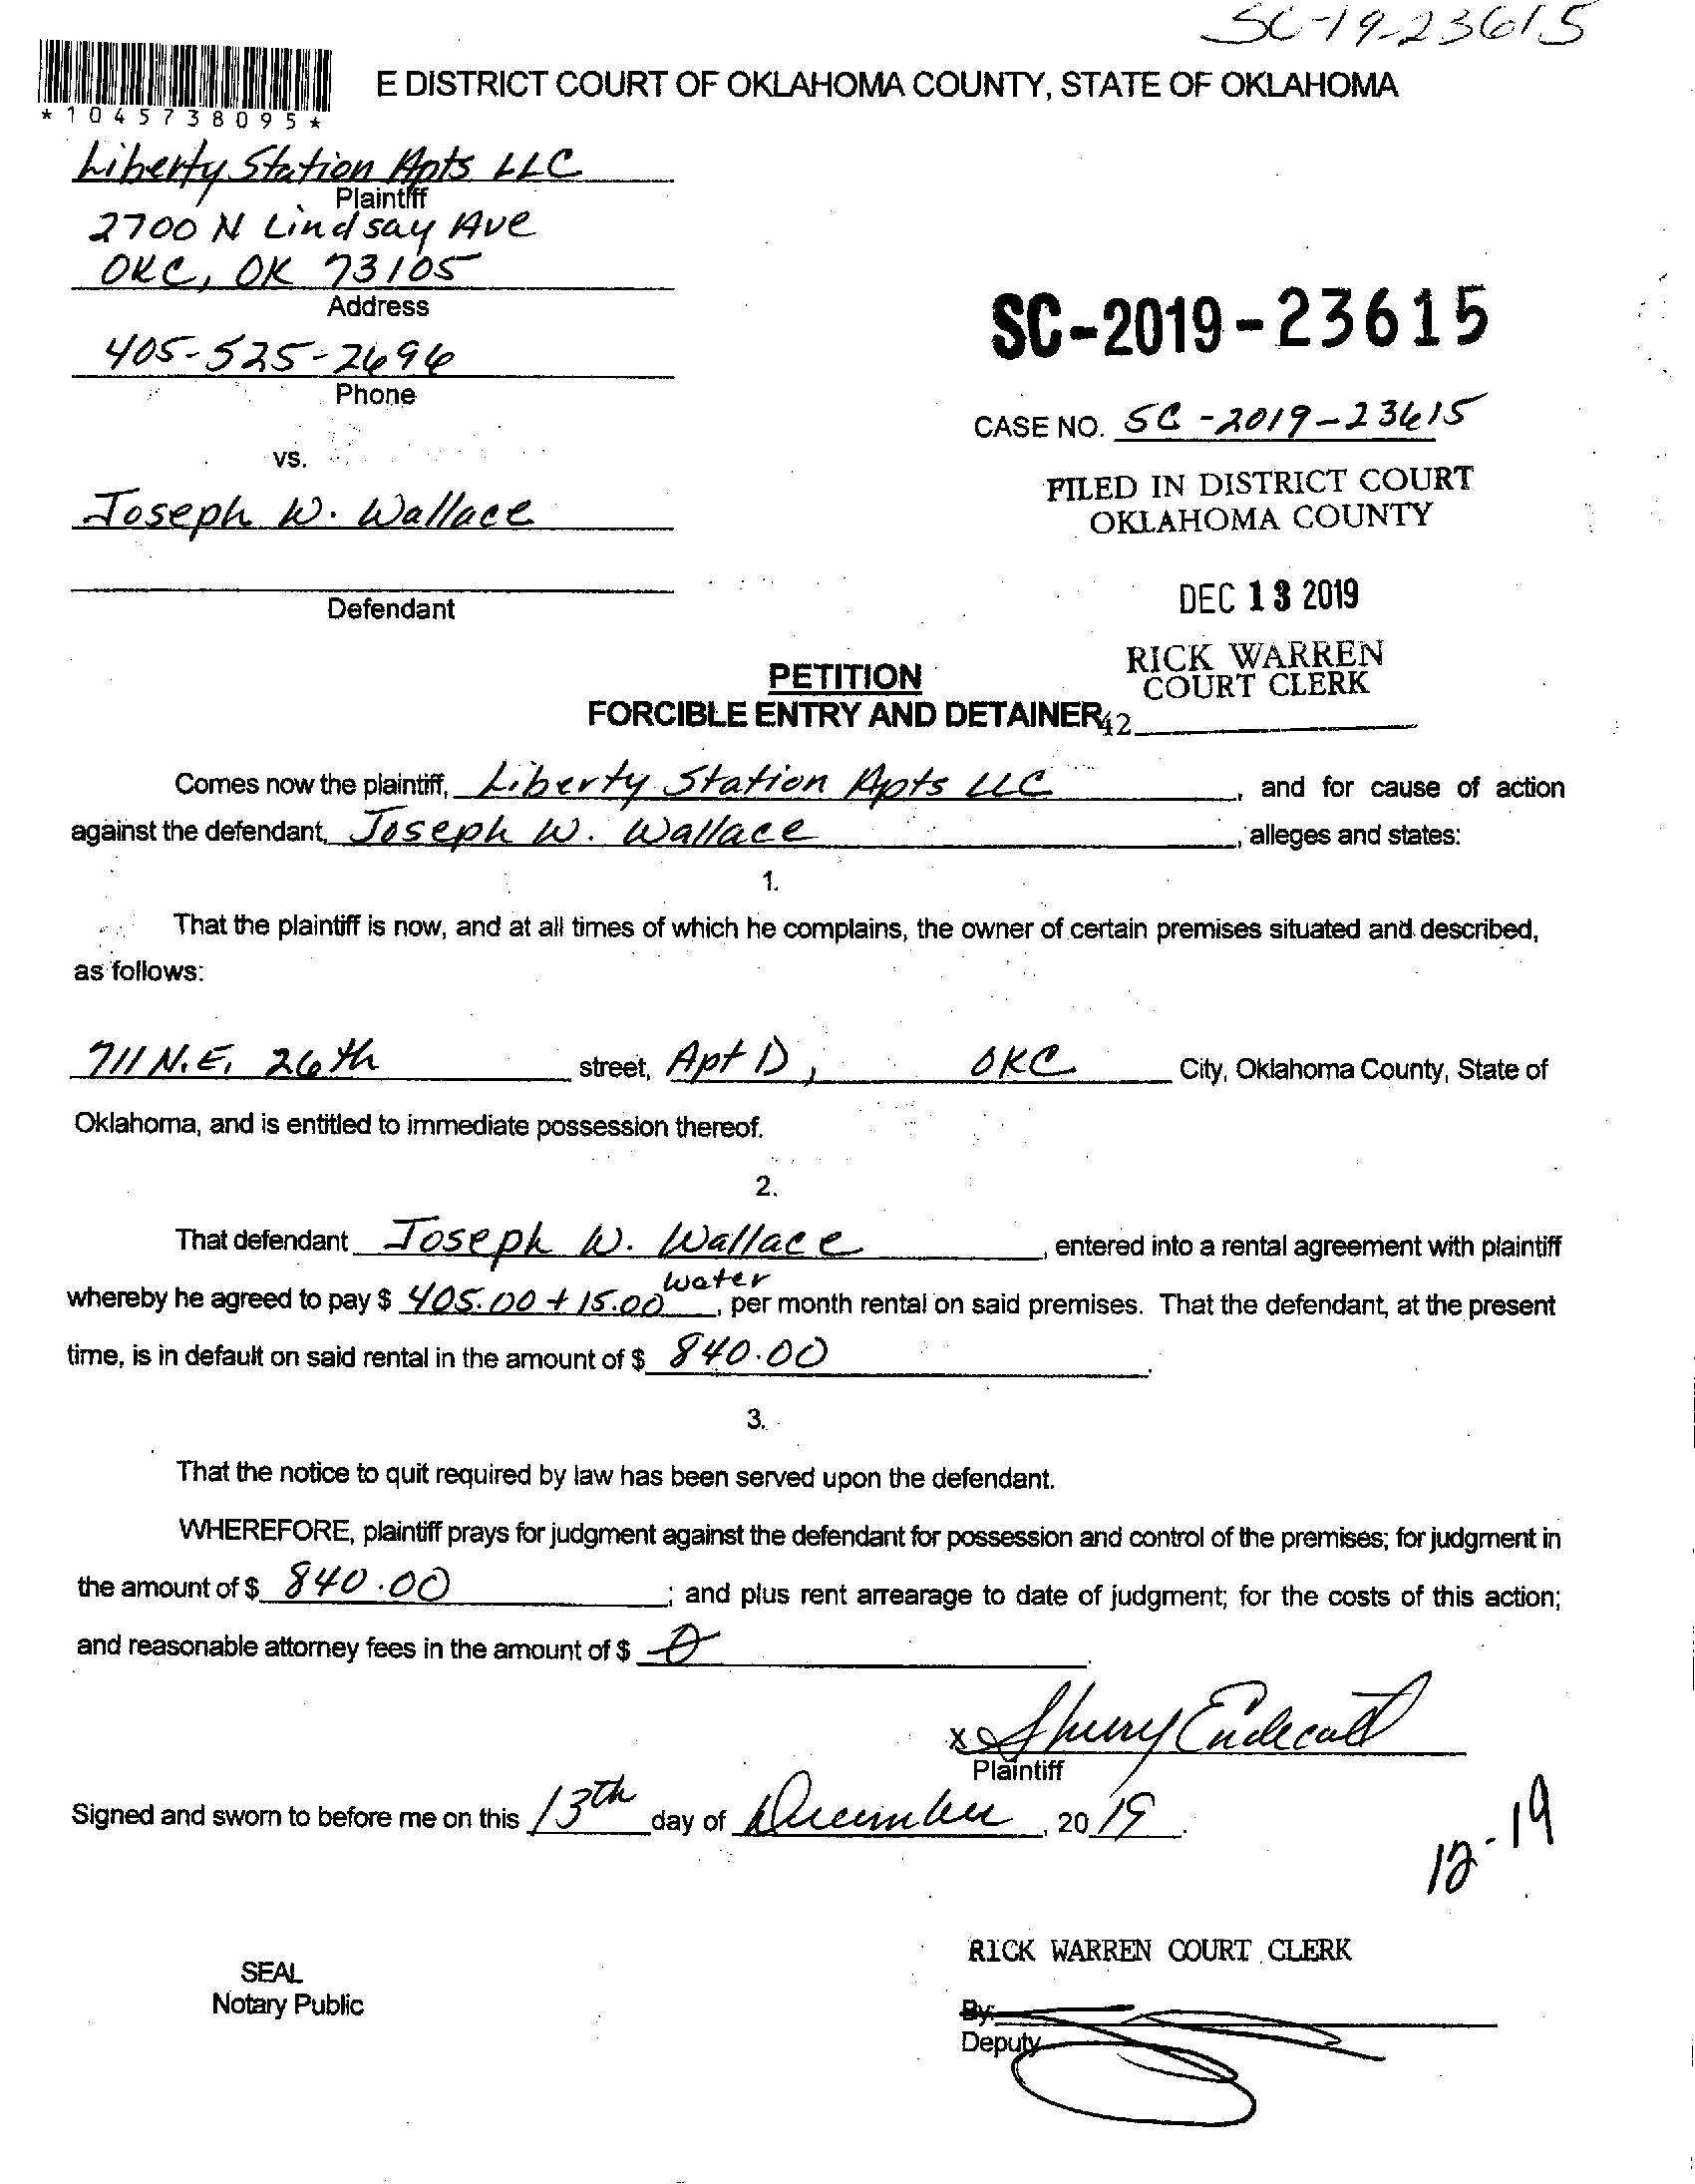 SC-19-23615
E DISTRICT COURT OF OKLAHOMA COUNTY, STATE OF OKLAHOMA
*1045738095*
Liberty Station Apts LLC
Plaintiff
2700 N Lindsay Ave
OKC, OK 73105
Address
405-525-2696
Phone
SC-2019-23615
CASE NO. SC-2019-23615
vs.
FILED IN DISTRICT COURT
OKLAHOMA COUNTY
Joseph W. Wallace
Defendant
DEC 13 2019
RICK WARREN
COURT CLERK
PETITION
FORCIBLE ENTRY AND DETAINER
42
Comes now the plaintiff, Liberty Station Apts LLC, and for cause of action
against the defendant, Joseph W. Wallace, alleges and states:
1.
That the plaintiff is now, and at all times of which he complains, the owner of certain premises situated and described,
as follows:
711 N.E. 26th street, Apt D, OKC City, Oklahoma County, State of
Oklahoma, and is entitled to immediate possession thereof.
2.
That defendant Joseph W. Wallace, entered into a rental agreement with plaintiff
whereby he agreed to pay $ 405.00 + 15.00 water, per month rental on said premises. That the defendant, at the present
time, is in default on said rental in the amount of $ 840.00.
3.
That the notice to quit required by law has been served upon the defendant.
WHEREFORE, plaintiff prays for judgment against the defendant for possession and control of the premises; for judgment in
the amount of $ 840.00; and plus rent arrearage to date of judgment; for the costs of this action;
and reasonable attorney fees in the amount of $ 0.
x Sherry Endecott
Plaintiff
Signed and sworn to before me on this 13th day of December, 2019.
12-19
RICK WARREN COURT CLERK
SEAL
Notary Public
By:
Deputy